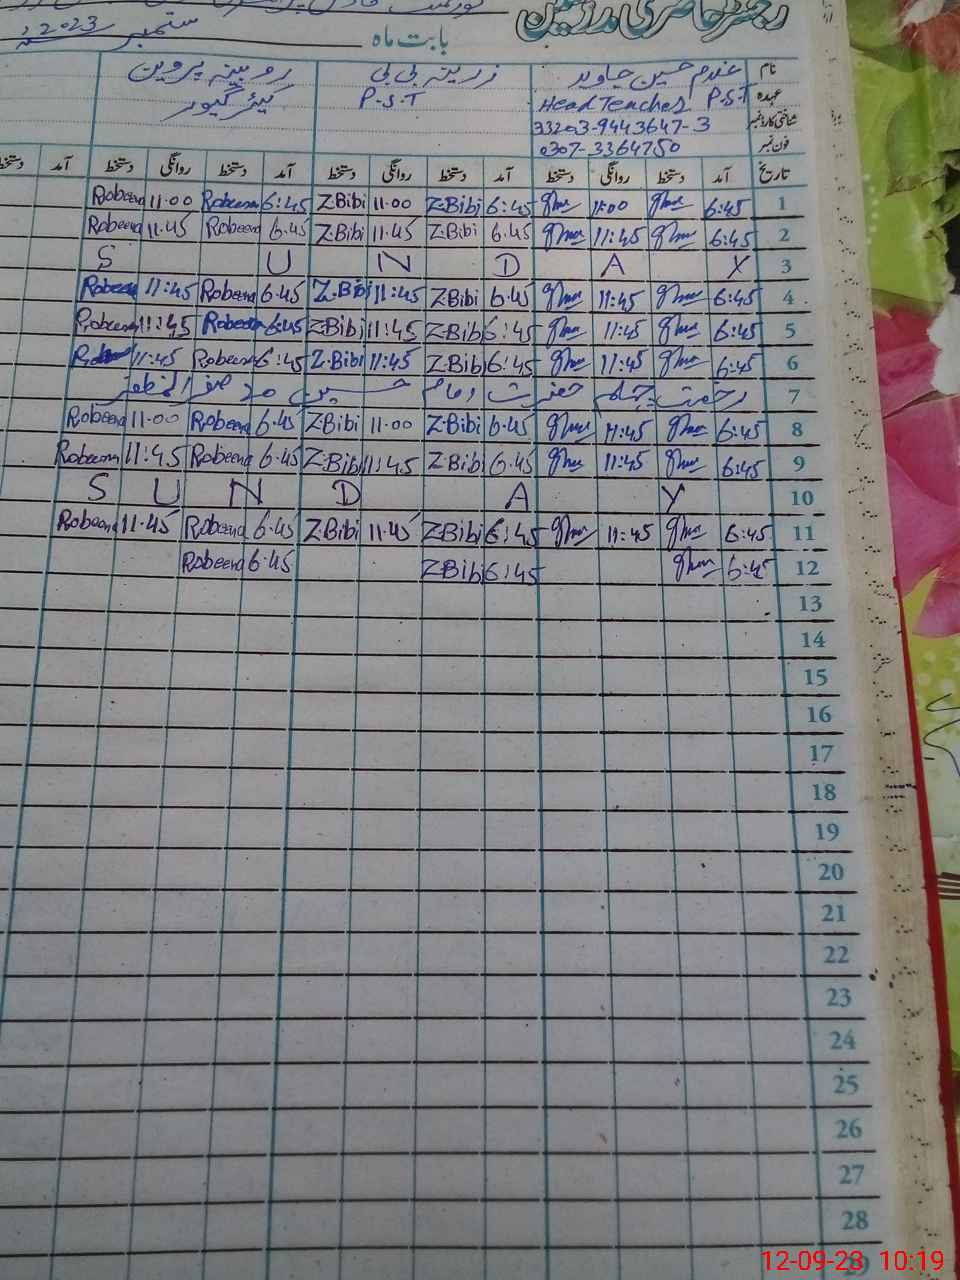 رجسٹر حاضری مدرسین
بابت ماہ ستمبر 2023ء
نام غلام حسین جاوید زرینہ بی بی روبینہ پروین
عہدہ Head Teacher P.S.T P.S.T کیئر گیور
شناختی کارڈ نمبر 33203-9443647-3
فون نمبر 0307-3364750
تاریخ آمد دستخط روانگی دستخط آمد دستخط روانگی دستخط آمد دستخط روانگی دستخط آمد دستخط
1 6:45 11:00 6:45 Z.Bibi 11.00 Z.Bibi 6:45 Robeena 11:00 Robeena
2 6:45 11:45 6.45 Z.Bibi 11.45 Z.Bibi 6.45 Robeena 11.45 Robeena
3 S U N D A Y
4 6:45 11:45 6.45 Z.Bibi 11:45 Z.Bibi 6.45 Robeena 11:45 Robeena
5 6:45 11:45 6:45 Z.Bibi 11.45 Z.Bibi 6:45 Robeena 11:45 Robeena
6 6:45 11:45 6:45 Z.Bibi 11:45 Z.Bibi 6:45 Robeena 11:45
7 رخصت چہلم حضرت امام حسین 20 صفر المظفر
8 6:45 11:45 6.45 Z.Bibi 11.00 Z.Bibi 6.45 Robeena 11.00 Robeena
9 6:45 11:45 6.45 Z.Bibi 11.45 Z.Bibi 6.45 Robeena 11:45 Robeena
10 S U N D A Y
11 6:45 11:45 6:45 Z.Bibi 11.45 Z.Bibi 6.45 Robeena 11.45 Robeena
12 6:45 6:45 Z.Bibi 6.45 Robeena
13
14
15
16
17
18
19
20
21
22
23
24
25
26
27
28
29
12-09-23 10:19